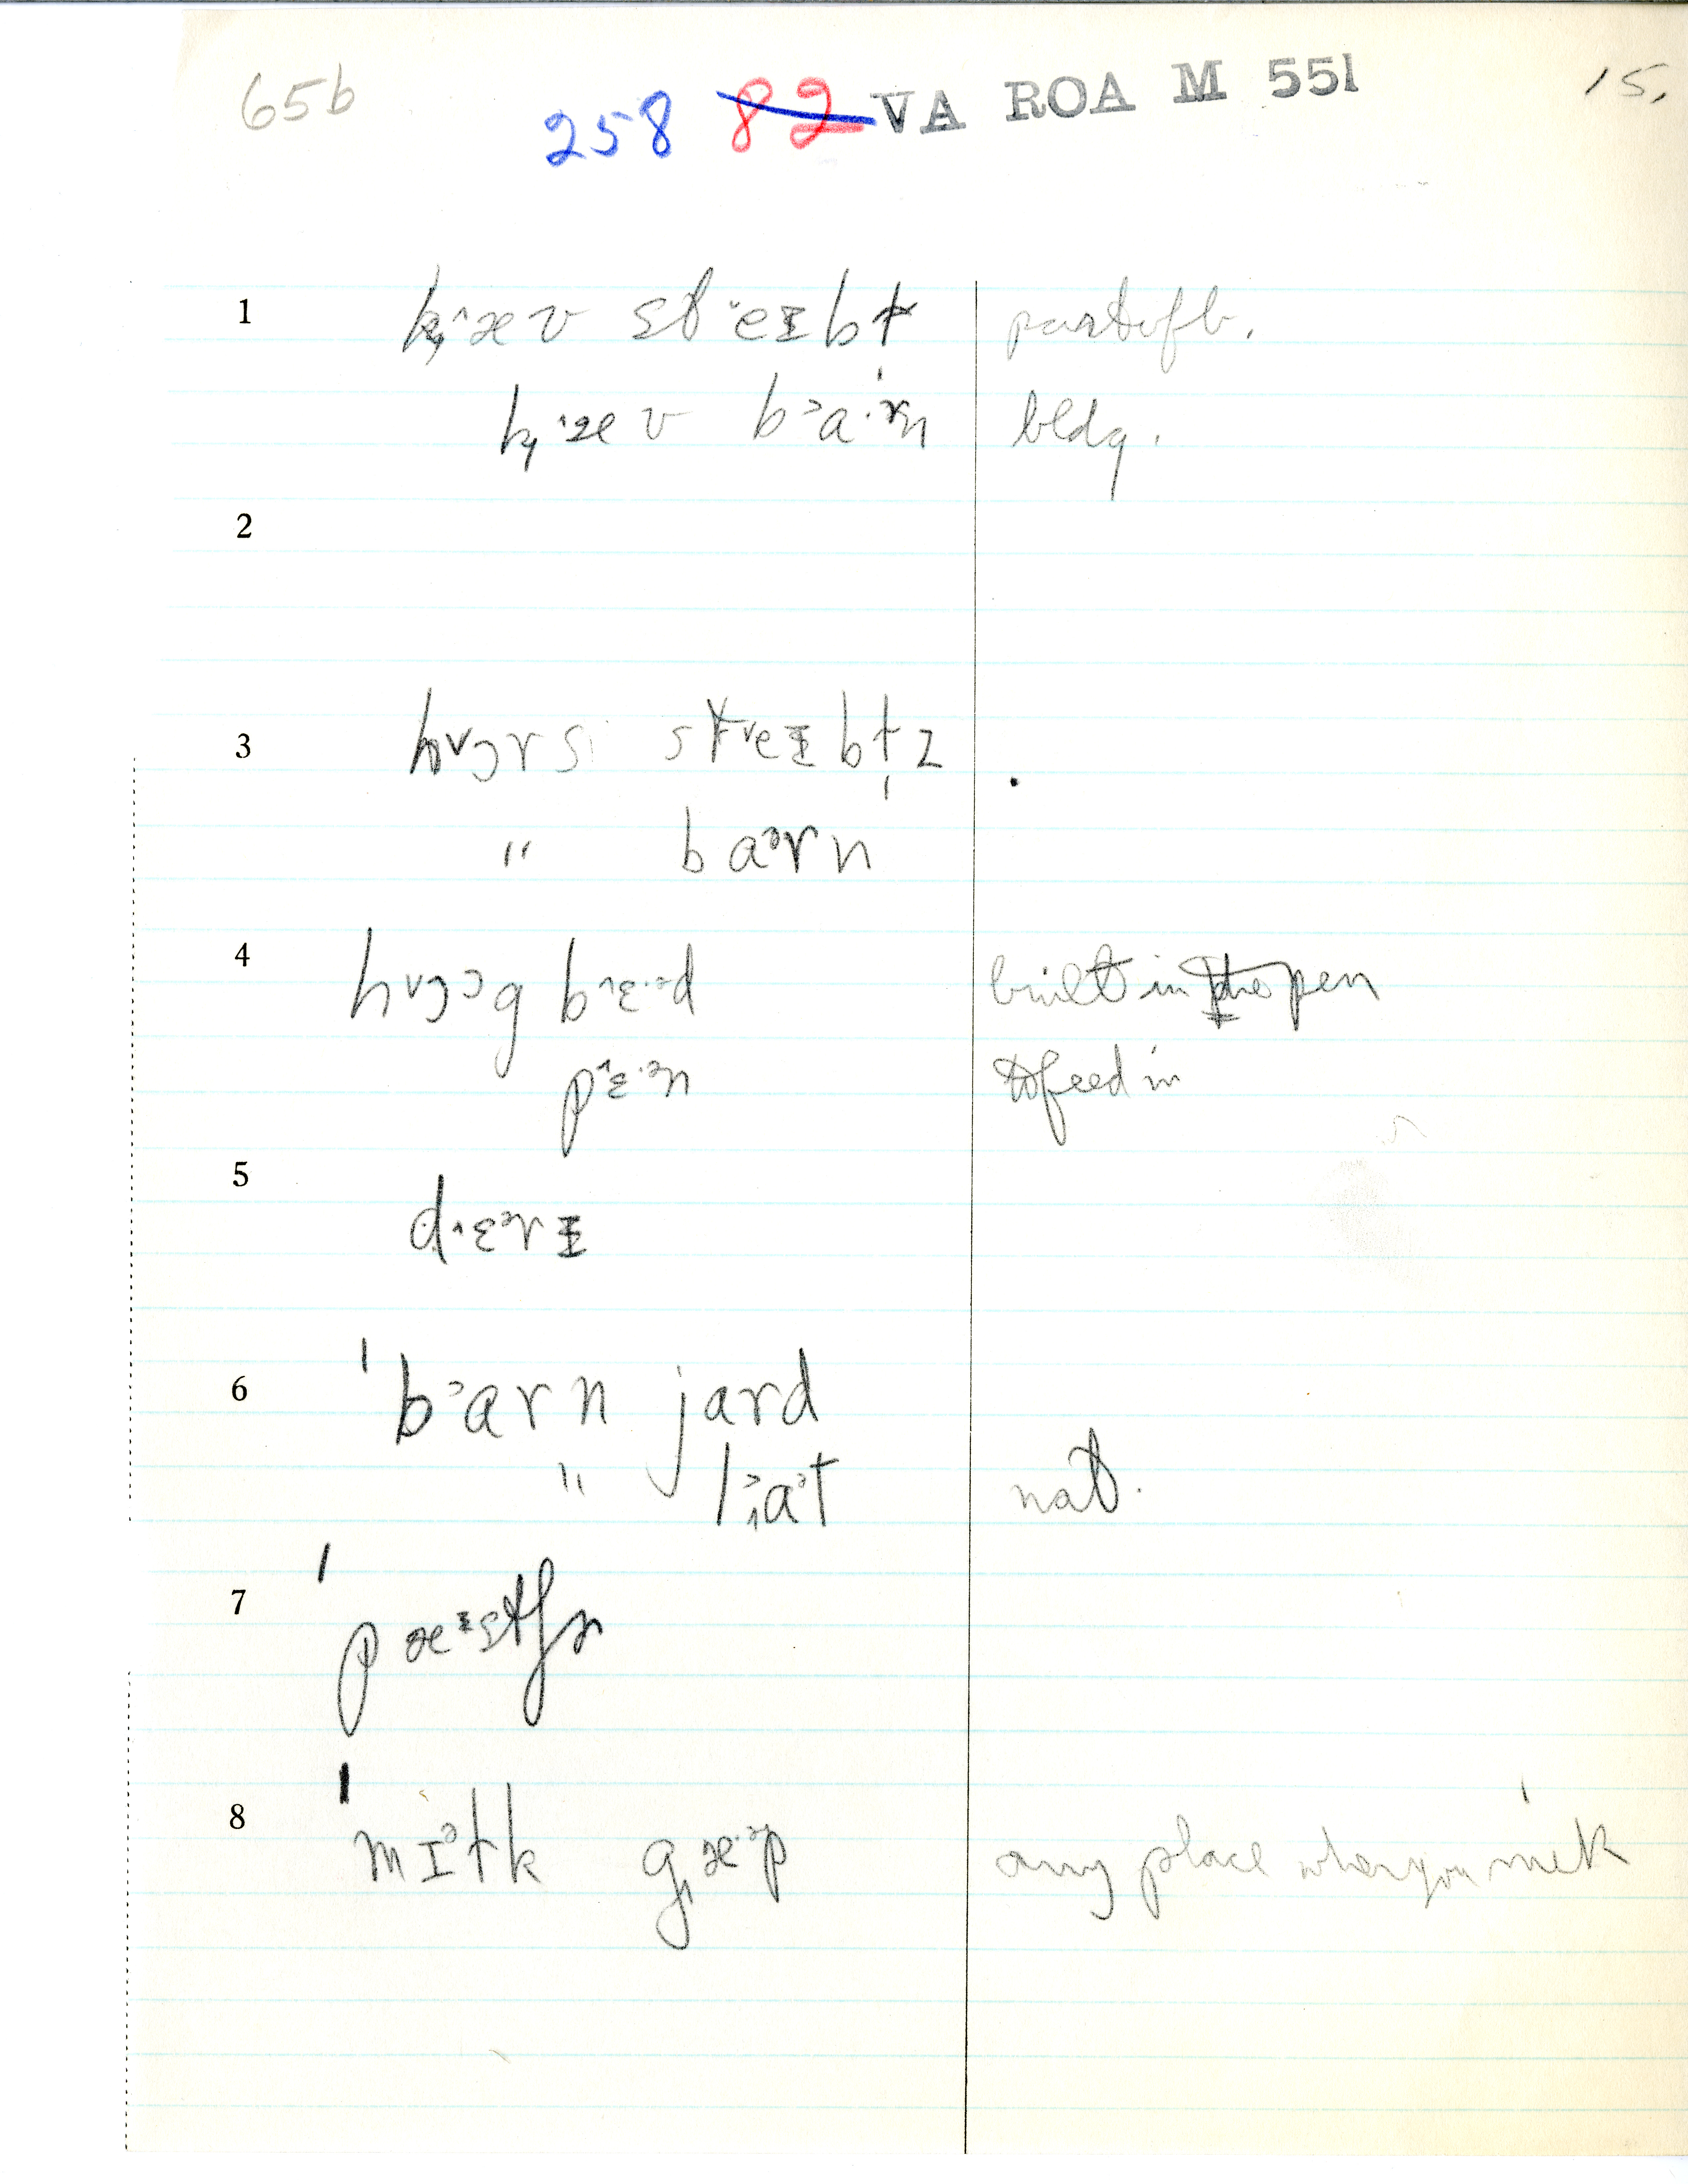 65b 258 82 VA ROA M 551 15.
1 k̦^æ v st ˇeɪbɫ part of b.
k̦^æ v bᵓa·ɚn bldg.
2
3 hᵛɔrs steɪbɫz
" baᵊrn
4 hᵛɔᵓg b^ɛ·ᵊd built in the open
p^ɛ·ᵊn to feed in
5 d^ɛᵊrɪ
6 ˈbᵓarn jard
" lᵓaᵊt nat.
7 ˈpæᶦstʃɚ
8 ˈmɪᵊɫk gæ·ᵊp any place where you milk